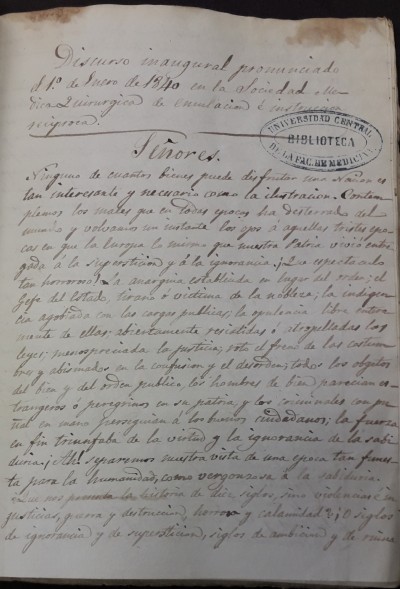 Discurso inaugural pronunciado
el 1º de Enero de 1840 en la Sociedad Me
dica Quirurgica de Emulacion é instruccion
reciproca.
UNIVERSIDAD CENTRAL
BIBLIOTECA
DE LA FAC. DE MEDICINA
Señores.
Ninguno de cuantos bienes puede disfrutar una Nacion es
tan interesante y necesario como la ilustracion. Contem
plemos los males que en todas epocas ha desterrado del
mundo y volvamos un instante los ojos á aquellas tristes epo
cas en que la Europa lo mismo que nuestra Patria vivió entre
gada á la supersticion y á la ignorancia. ¡Que espectaculo
tan horroroso! La anarquia establecida en lugar del orden; el
Jefe del Estado, tirano ó victima de la nobleza; la indigen
cia agobiada con las cargas publicas; la opulencia libre entera
mente de ellas; abiertamente resistidas ó atropelladas las
leyes; menospreciada la justicia, roto el freno de las costum
bres y abismados en la confusion y el desorden; todos los objetos
del bien y del orden publico, los hombres de bien parecian es
trangeros ó peregrinos en su patria y los criminales con pu
ñal en mano perseguian á los buenos ciudadanos; la fuerza
en fin triunfaba de la virtud y la ignorancia de la sabi
duria. ¡Ah! separemos nuestra vista de una epoca tan funes
ta para la humanidad, como vergonzosa á la sabiduria.
¿Que nos presenta la historia de diez siglos, sino violencias é in
justicias, guerra y destruccion, horror y calamidad? ¡O siglos
de ignorancia y de supersticion, siglos de ambicion y de ruina